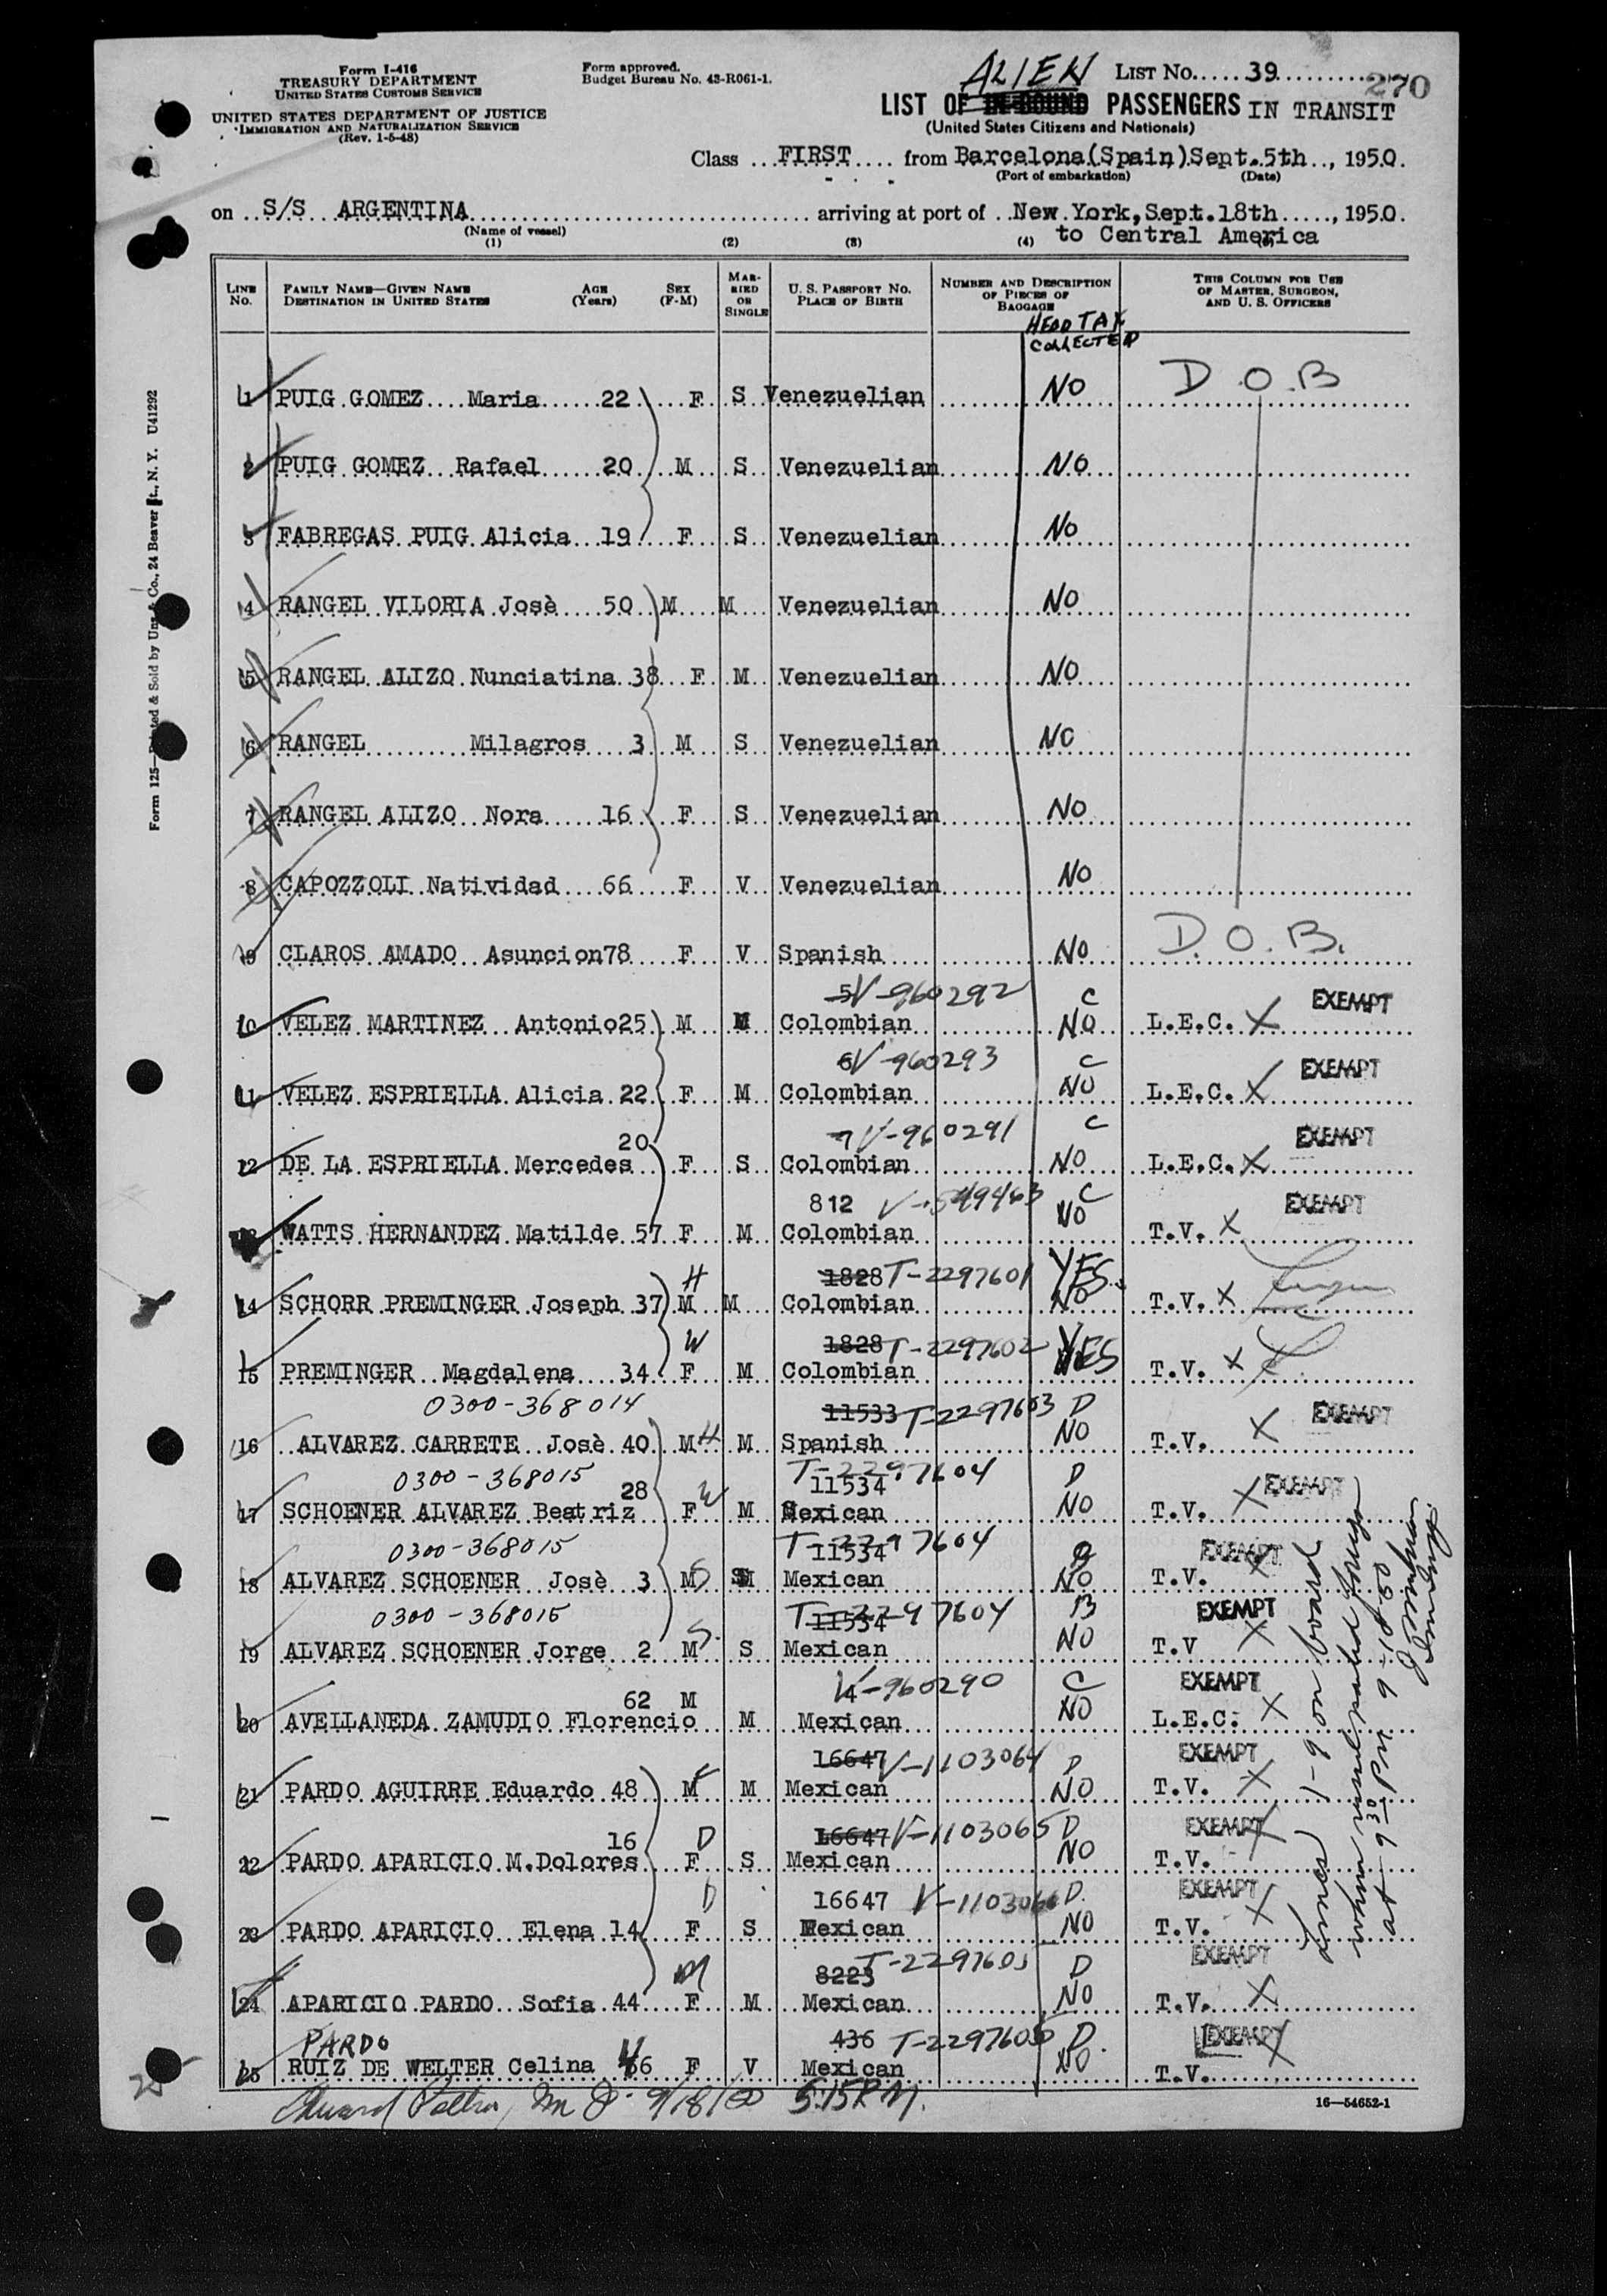 Form I-416
TREASURY DEPARTMENT
UNITED STATES CUSTOMS SERVICE
UNITED STATES DEPARTMENT OF JUSTICE
IMMIGRATION AND NATURALIZATION SERVICE
(Rev. 1-5-48)
Form approved.
Budget Bureau No. 43-R061-1.
ALIEN LIST No. 39 270
LIST OF IN-BOUND PASSENGERS IN TRANSIT
(United States Citizens and Nationals)
Class FIRST from Barcelona(Spain) Sept. 5th, 1950.
(Port of embarkation) (Date)
on S/S ARGENTINA arriving at port of New York, Sept. 18th, 1950.
(Name of vessel) to Central America
(1) (2) (3) (4) (5)
LINE No. FAMILY NAME—GIVEN NAME DESTINATION IN UNITED STATES AGE (Years) SEX (F-M) MARRIED OR SINGLE U. S. PASSPORT No. PLACE OF BIRTH NUMBER AND DESCRIPTION OF PIECES OF BAGGAGE THIS COLUMN FOR USE OF MASTER, SURGEON, AND U. S. OFFICERS
HEAD TAX COLLECTED
1 PUIG GOMEZ Maria 22 F S Venezuelian NO D.O.B
2 PUIG GOMEZ Rafael 20 M S Venezuelian NO
3 FABREGAS PUIG Alicia 19 F S Venezuelian NO
4 RANGEL VILORIA Josè 50 M M Venezuelian NO
5 RANGEL ALIZO Nunciatina 38 F M Venezuelian NO
6 RANGEL Milagros 3 M S Venezuelian NO
7 RANGEL ALIZO Nora 16 F S Venezuelian NO
8 CAPOZZOLI Natividad 66 F V Venezuelian NO
9 CLAROS AMADO Asuncion 78 F V Spanish NO D.O.B.
5 V-960292 C EXEMPT
10 VELEZ MARTINEZ Antonio 25 M M Colombian NO L.E.C. X
6 V-960293 C EXEMPT
11 VELEZ ESPRIELLA Alicia 22 F M Colombian NO L.E.C. X
20 7 V-960291 C EXEMPT
12 DE LA ESPRIELLA Mercedes F S Colombian NO L.E.C. X
812 V-549463 C EXEMPT
WATTS HERNANDEZ Matilde 57 F M Colombian NO T.V. X
H 1828 T-2297601 YES
14 SCHORR PREMINGER Joseph 37 M M Colombian NO T.V. X
W 1828 T-2297602 YES
15 PREMINGER Magdalena 34 F M Colombian T.V. X
0300-368014 11533 T-2297603 D EXEMPT
16 ALVAREZ CARRETE Josè 40 M H M Spanish NO T.V. X
0300-368015 28 W T-2297604 11534 D EXEMPT
17 SCHOENER ALVAREZ Beatriz F M Mexican NO T.V. X
0300-368015 T-2297604 11534 EXEMPT
18 ALVAREZ SCHOENER Josè 3 M S Mexican NO T.V. X
0300-368015 T-2297604 11534 B EXEMPT
19 ALVAREZ SCHOENER Jorge 2 M S. S Mexican NO T.V X
62 M 4 V-960290 C EXEMPT
20 AVEILANEDA ZAMUDIO Florencio M Mexican NO L.E.C. X
16647 V-1103064 D EXEMPT
21 PARDO AGUIRRE Eduardo 48 M M Mexican NO T.V. X
16 D 16647 V-1103065 D EXEMPT
22 PARDO APARICIO M.Dolores F S Mexican NO T.V. X
D 16647 V-1103066 D. EXEMPT
23 PARDO APARICIO Elena 14 F S Mexican NO T.V. X
M 8223 T-2297605 D EXEMPT
24 APARICIO PARDO Sofia 44 F M Mexican NO T.V. X
PARDO 436 T-2297606 D. EXEMPT
25 RUIZ DE WELTER Celina 46 F V Mexican NO T.V. X
Lines 1-9 on board
when vessel
at 9 30 PM 9-18-50
Imm Insp
25
9/18/50 5:15 P.M.
16—54652-1
Form 125—Printed & Sold by Unz & Co., 24 Beaver St., N. Y. U41292